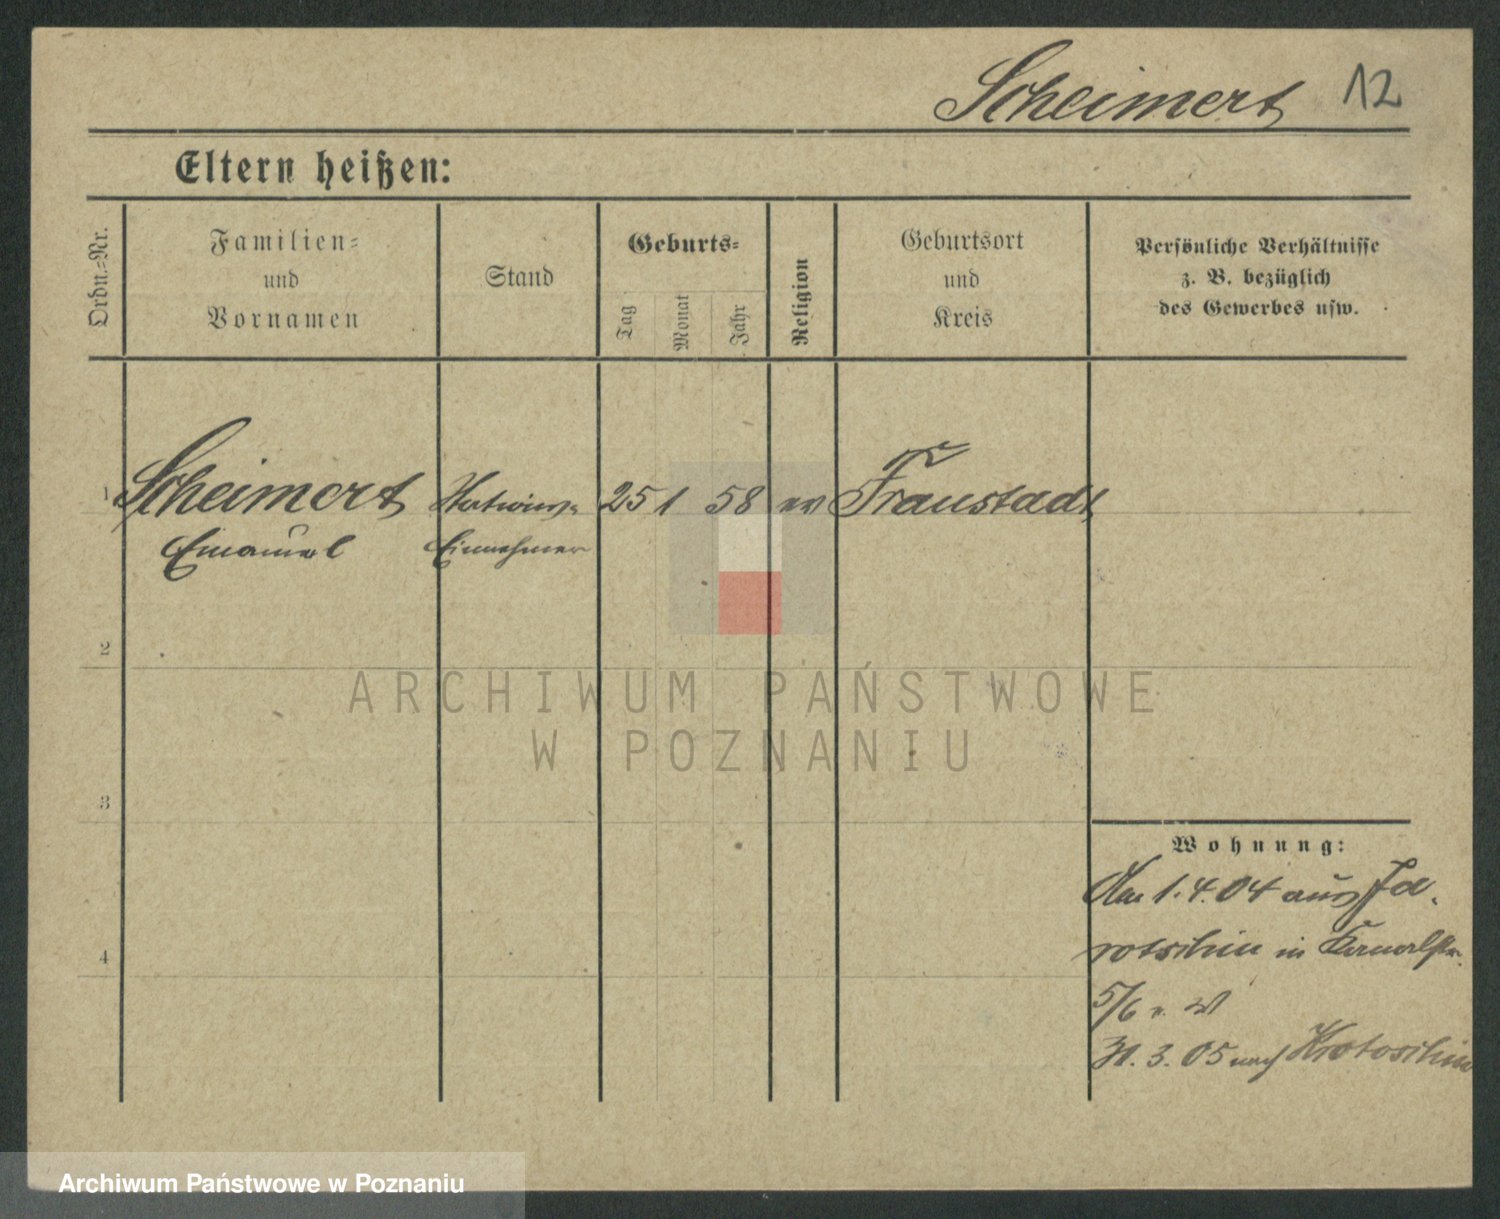 Scheimert 12
Eltern heißen:
Ordn.-Nr.
Familien-
und
Vornamen
Stand
Geburts-
Tag
Monat
Jahr
Religion
Geburtsort
und
Kreis
Persönliche Verhältnisse
z. B. bezüglich
des Gewerbes usw.
1 Scheimert Stations- 25 1 58 ev Fraustadt
Emanuel Einnehmer
2
ARCHIWUM PAŃSTWOWE
W POZNANIU
3
Wohnung:
Am 1.4.04 aus Ja-
rotschin in Kanalstr.
4
5/6 W
31.3.05 nach Krotoschin
Archiwum Państwowe w Poznaniu